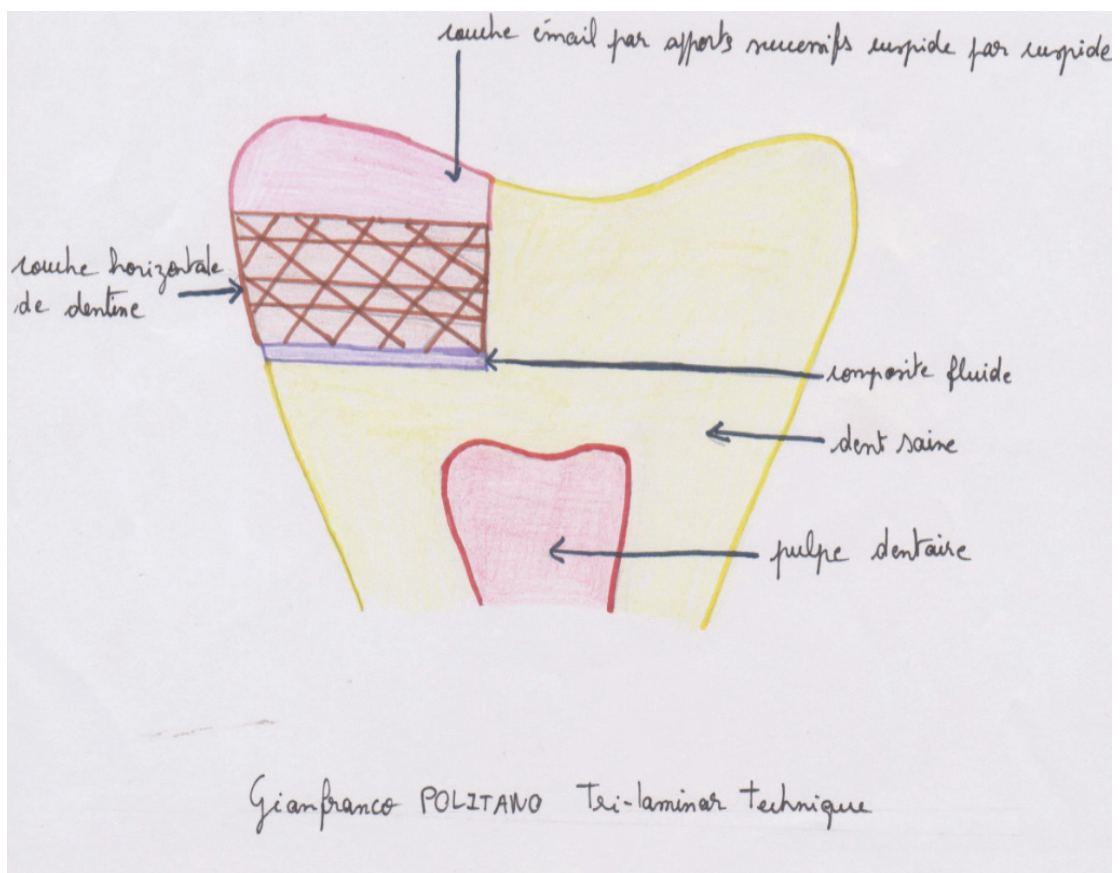 couche émail par apports successifs cuspide par cuspide
couche horizontale
de dentine
composite fluide
dent saine
pulpe dentaire
Gianfranco POLITANO Tri-laminar technique